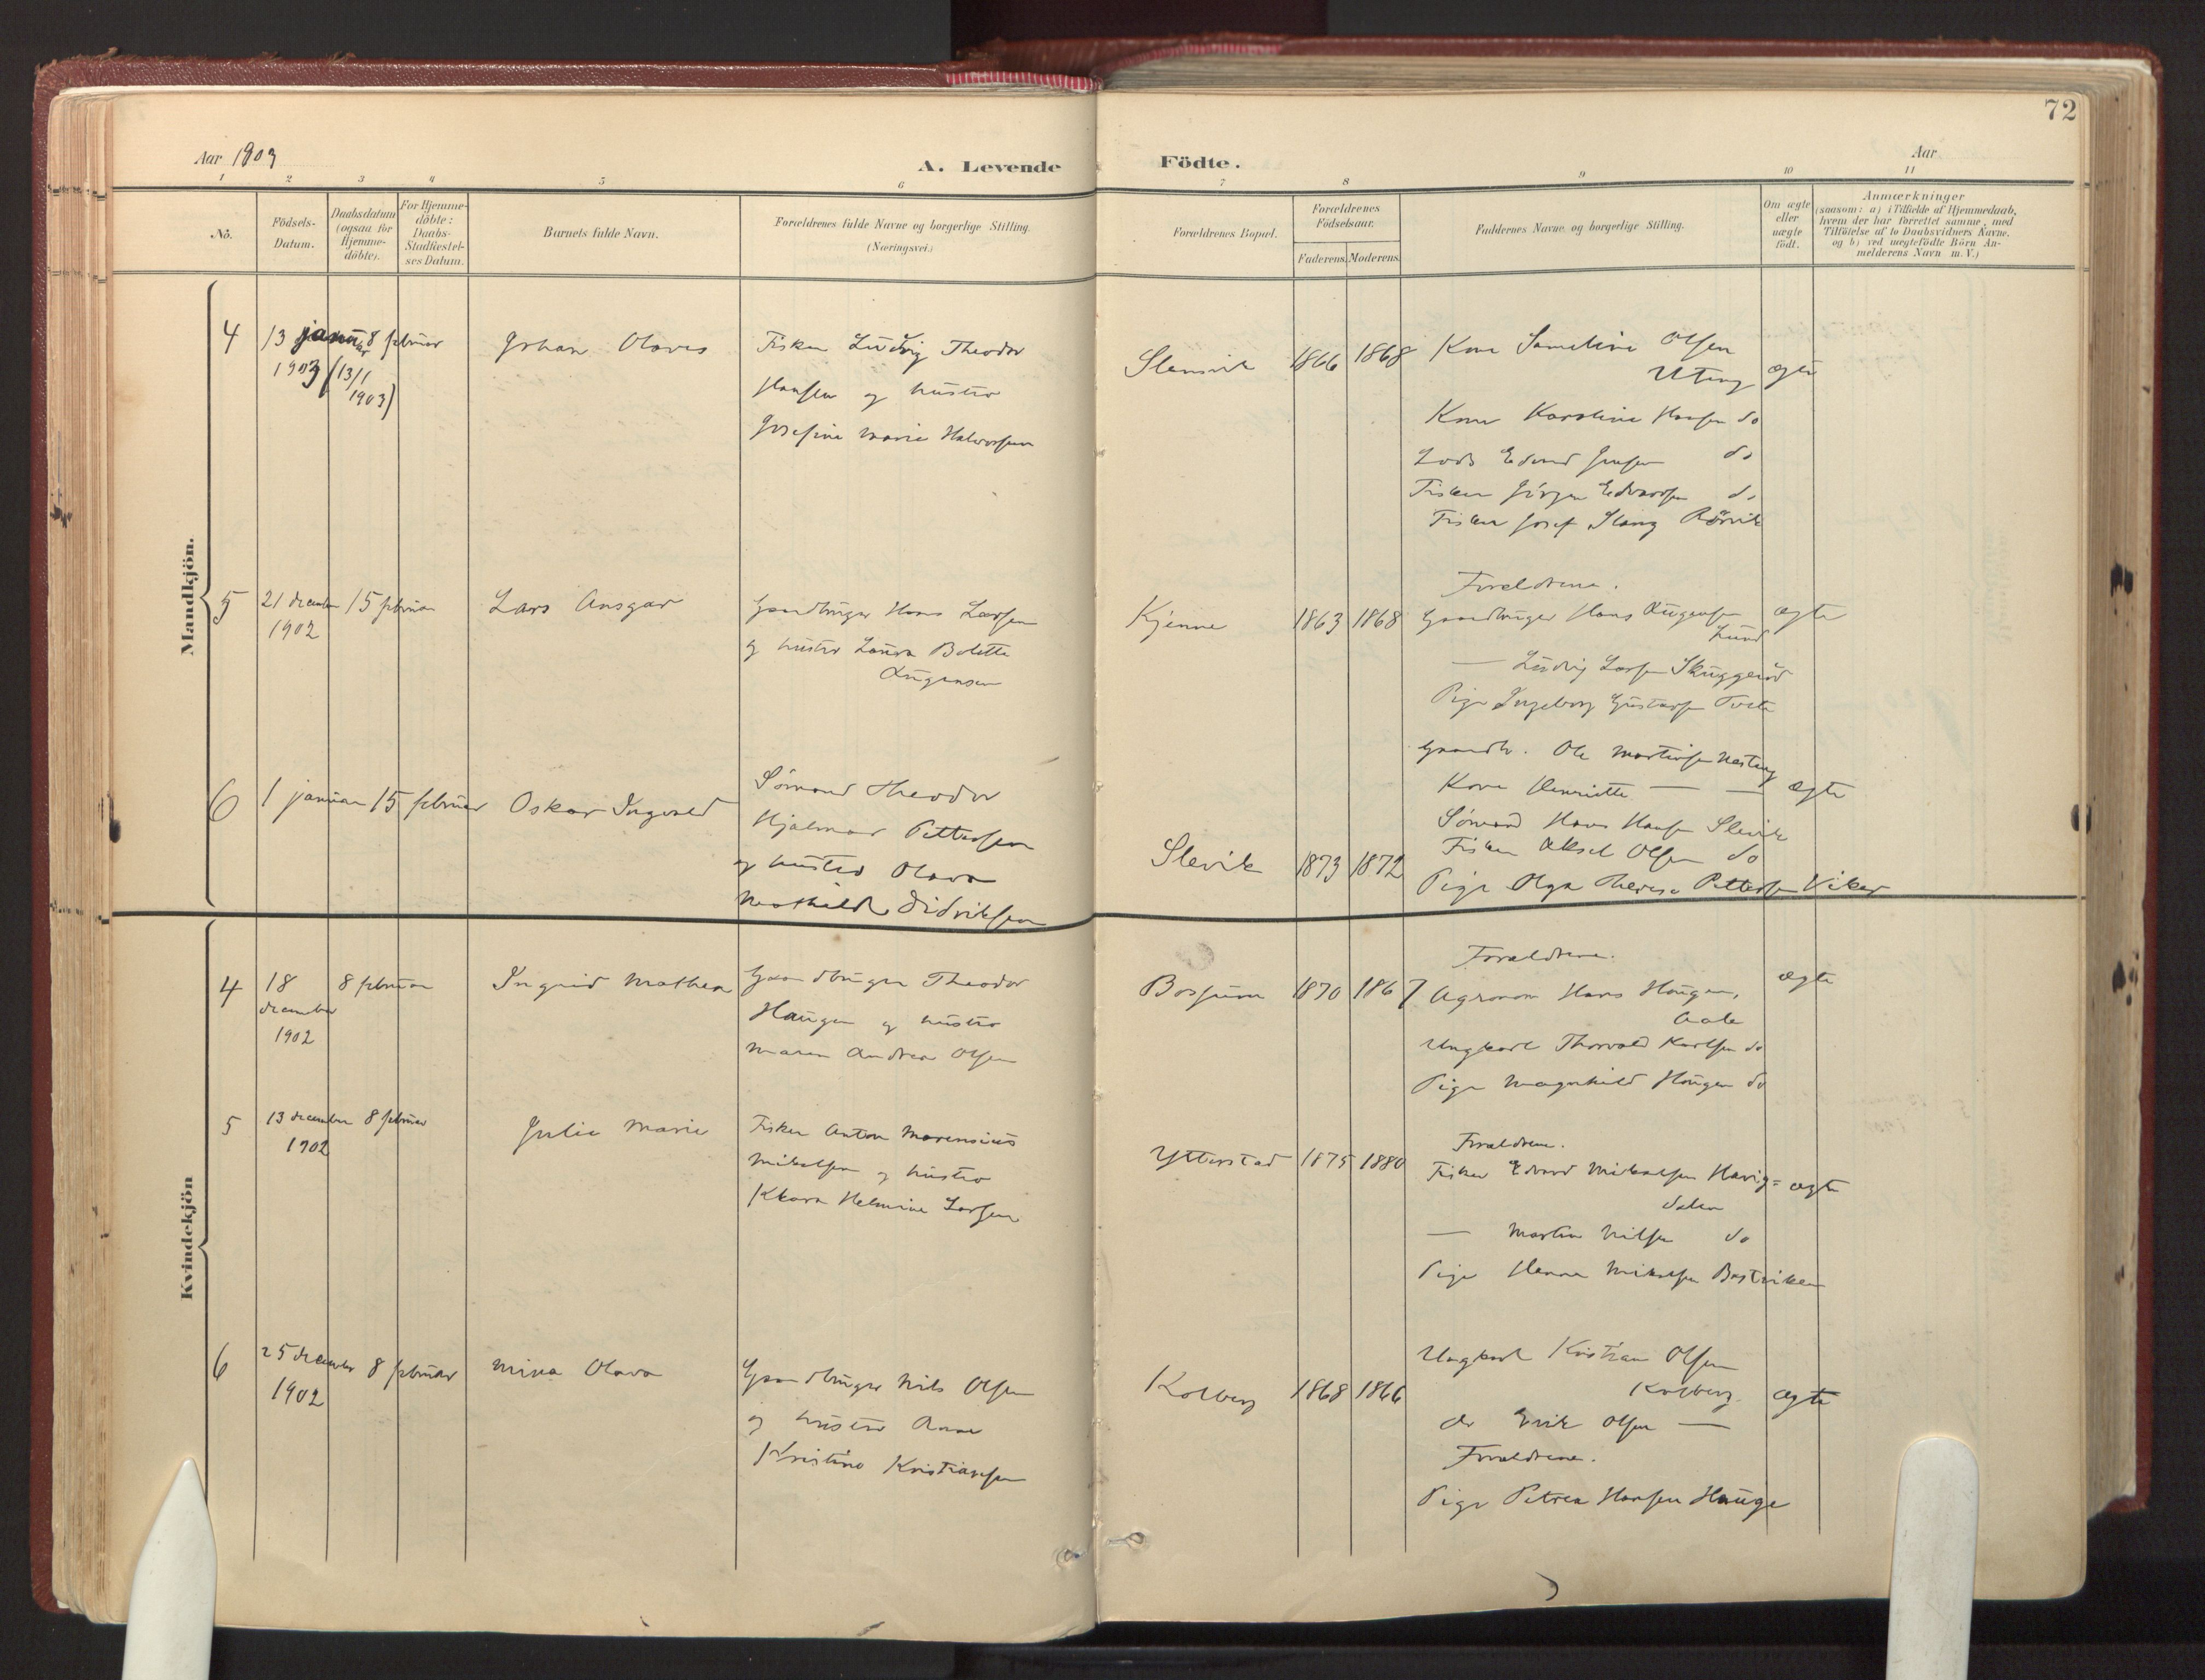 72
Aar 1903
A. Levende Födte.
Aar
1 2 3 4 5 6 7 8 9 10 11
No.
Födsels-Datum.
Daabsdatum (ogsaa for Hjemme-döbte).
For Hjemme-döbte: Daabs-Stadfæstel-ses Datum.
Barnets fulde Navn.
Forældrenes fulde Navne og borgerlige Stilling.
(Næringsvei.)
Forældrenes Bopæl.
Forældrenes Födselsaar.
Faderens. Moderens.
Faddernes Navne og borgerlige Stilling.
Om ægte eller uægte födt.
Anmærkninger
(saasom: a) i Tilfælde af Hjemmedaab,
hvem der har forrettet samme, med
Tilföielse af to Daabsvidners Navne.
og b) ved uægtefödte Börn An-
melderens Navn m.V.)
Mandkjön.
4 13 januar 8 februar Johan Olaves Fisker Ludvig Theodor
1903 (13/1
1903)
Hansen og hustro
Josefine Marie Halvorsen
1866 1868 Kone Olsen
Uteng ægte
Kone Karoline Hansen do
Lods Edvard Jensen do
Fisker Jörgen Edvardsen do
Fisker Josef Slang Rörvik
5 21 december 15 februar Lars Ansgar Gaardbruger Hans Larsen
1902
og hustro Laura Bolette
Augensen
Kjenne 1863 1868
Foreldrene.
Gaardbruger Hans Augensen ægte
Lund
— Ludvig Larsen Skuggeröd
Pige Ingeborg Gustavsen Tvete
6 1 januar 15 februar Oskar Ingvald Sömand Theodor
Hjalmar Pettersen
og hustro Olava
Mathilde Didriksen
Slevik 1873 1872
Gaardb. Ole Martinsen Nesteng
Kone Henriette — — ægte
Sömand Hans Hansen Slevik
Fisker Aksel Olsen do
Pige Olga Therese Pettersen Viker
Kvindekjön
4 18 8 februar Ingrid Mathea Gaardbruger Theodor
december
1902
Haugen og hustro
Maren Andrea Olsen
Bossum 1870 1867
Forældrene.
Agronom Hans Haugen, ægte
Aale
Ungkarl Thorvald Karlsen do
Pige Magnhild Haugen do
5 13 december 8 februar Julie Marie Fisker Anton Marensius
1902
Mikalsen og hustro
Klara Helmine Larsen
Ytterstad 1875 1880
Forældrene.
Fisker Edvard Mikalsen Havig= ægte
dalen
— Martin Nilsen do
Pige Hanna Mikalsen Bastviken
6 25 december 8 februar Mina Olava Gaardbruger Nils Olsen
1902
og hustro Anne
Kristine Kristiansen
Kolberg 1868 1866
Ungkarl Kristian Olsen
Kolberg. ægte
do Erik Olsen —
Forældrene.
Pige Petrea Hansen Hauge